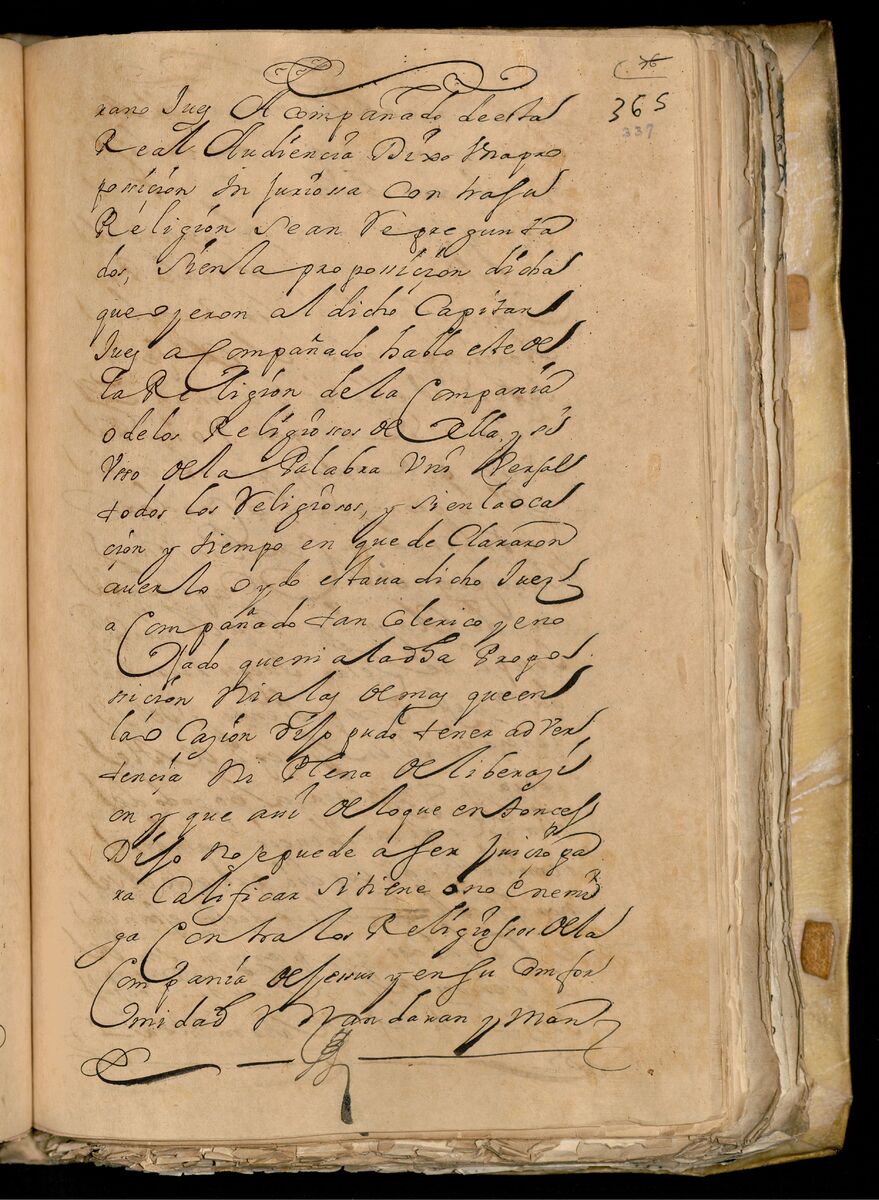 76
365
337
rano Juez Acompañado deesta
Real Audiencia Dixo Vnapro
possicion Injuriossa contrasu
Religion Sean Repregunta
dos, Sienla propossicion dicha
que oyeron al dicho Capitan
Juez acompañado hablo este de
la Religion dela Compania
odelos Religiossos de ella, y si
Vsso dela Palabra Vniversal
todos los Religiosos, y sienlaoca
cion y tiempo en que declararon
auerlo oydo estaua dicho Juez
a Compañado tan Colerico yeno
Jado queni aladha Propos
sicion Nialas demas queen
laocazion Dijo pudo tener adver
tencia Ni Plena deliberaçi
on y que assi deloque entonces
Dijo nosepuede aser juicio pa
ra Calificar si tiene ono enemi
ga Contra los Religiosos dela
Compania deJessus yensu Confor
midad Mandaran y Man